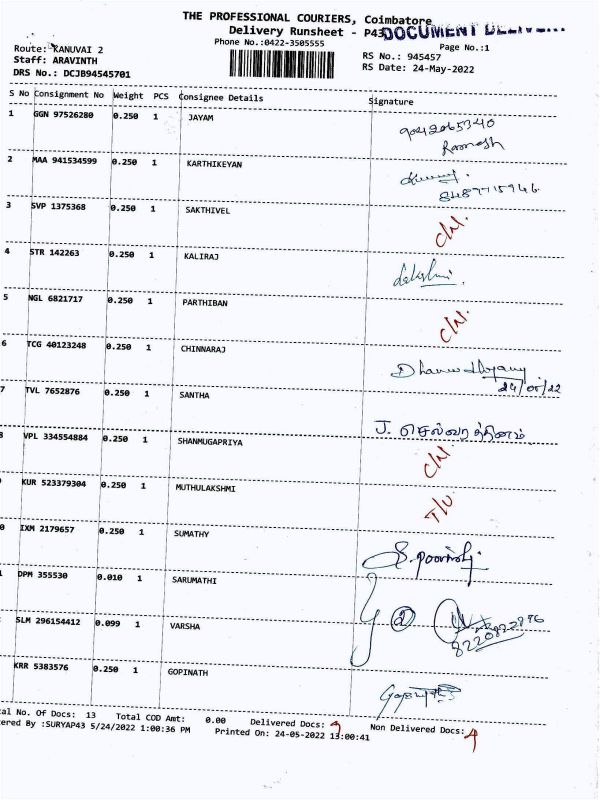 THE PROFESSIONAL COURIERS, Coimbatore
Delivery Runsheet - P43
DOCUMENT
Phone No.:0422-3505555
Page No.:1
Route: KANUVAI 2
Staff: ARAVINTH
DRS No.: DCJB94545701
RS No.: 945457
RS Date: 24-May-2022
S No Consignment No Weight PCS Consignee Details Signature
1 GGN 97526280 0.250 1 JAYAM
9042065340
Ramesh
2 MAA 941534599 0.250 1 KARTHIKEYAN
8489715946
3 SVP 1375368 0.250 1 SAKTHIVEL C/N.
4 STR 142263 0.250 1 KALIRAJ
5 NGL 6821717 0.250 1 PARTHIBAN C/N.
6 TCG 40123248 0.250 1 CHINNARAJ
24/05/22
7 TVL 7652876 0.250 1 SANTHA J. செல்வரத்தினம்
8 VPL 334554884 0.250 1 SHANMUGAPRIYA C/N.
KUR 523379304 0.250 1 MUTHULAKSHMI T/U
0 IXM 2179657 0.250 1 SUMATHY
1 DPM 355530 0.010 1 SARUMATHI
2 SLM 296154412 0.099 1 VARSHA
②
8220822876
KRR 5383576 0.250 1 GOPINATH
al No. Of Docs: 13 Total COD Amt: 0.00 Delivered Docs: 9 Non Delivered Docs: 4
ered By :SURYAP43 5/24/2022 1:00:36 PM Printed On: 24-05-2022 13:00:41